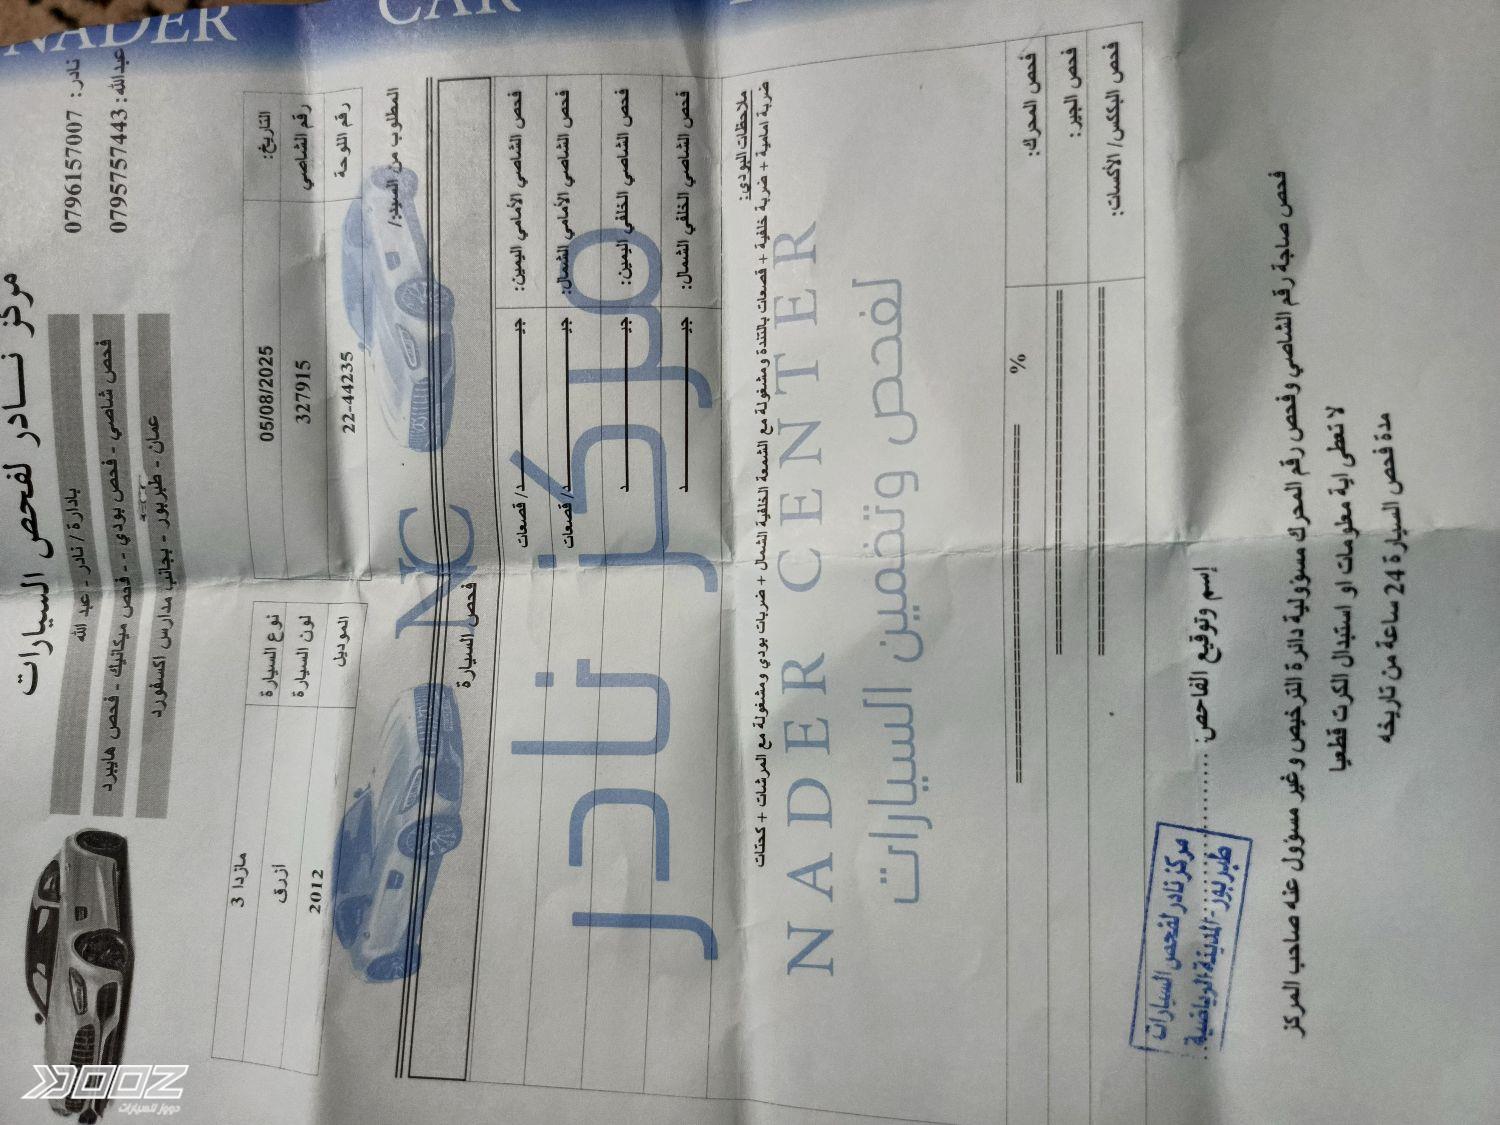 NADER CAR
مركز نادر لفحص السيارات
نادر: 0796157007
عبدالله: 0795757443
بادارة / نادر - عبد الله
فحص شاصي - فحص بودي - - فحص ميكانيك - فحص هايبرد
عمان - طبربور - بجانب مدارس اكسفورد
التاريخ: 05/08/2025
رقم الشاصي 327915
رقم اللوحة 22-44235
نوع السيارة مازدا 3
لون السيارة ازرق
الموديل 2012
المطلوب من السيد:/
NC
فحص السيارة
فحص الشاصي الأمامي اليمين: جيد/ قصعات
فحص الشاصي الأمامي الشمال: جيد/ قصعات
فحص الشاصي الخلفي اليمين: جيد
فحص الشاصي الخلفي الشمال: جيد
مركز نادر
ملاحظات البودي:
ضربة امامية + ضربة خلفية + قصعات بالتندة ومشغولة مع الشمعة الخلفية الشمال + ضربات بودي ومشغولة مع المرشات + كحتات
NADER CENTER
لفحص وتخمين السيارات
فحص المحرك: %
فحص الجير:
فحص البكس/ الأكسات:
إسم وتوقيع الفاحص:
مركز نادر لفحص السيارات
طبربور - المدينة الرياضية
فحص صاجة رقم الشاصي وفحص رقم المحرك مسؤولية دائرة الترخيص وغير مسؤول عنه صاحب المركز
لا تعطى اية معلومات او استبدال الكرت قطعيا
مدة فحص السيارة 24 ساعة من تاريخه
DOOZ
دووز للسيارات